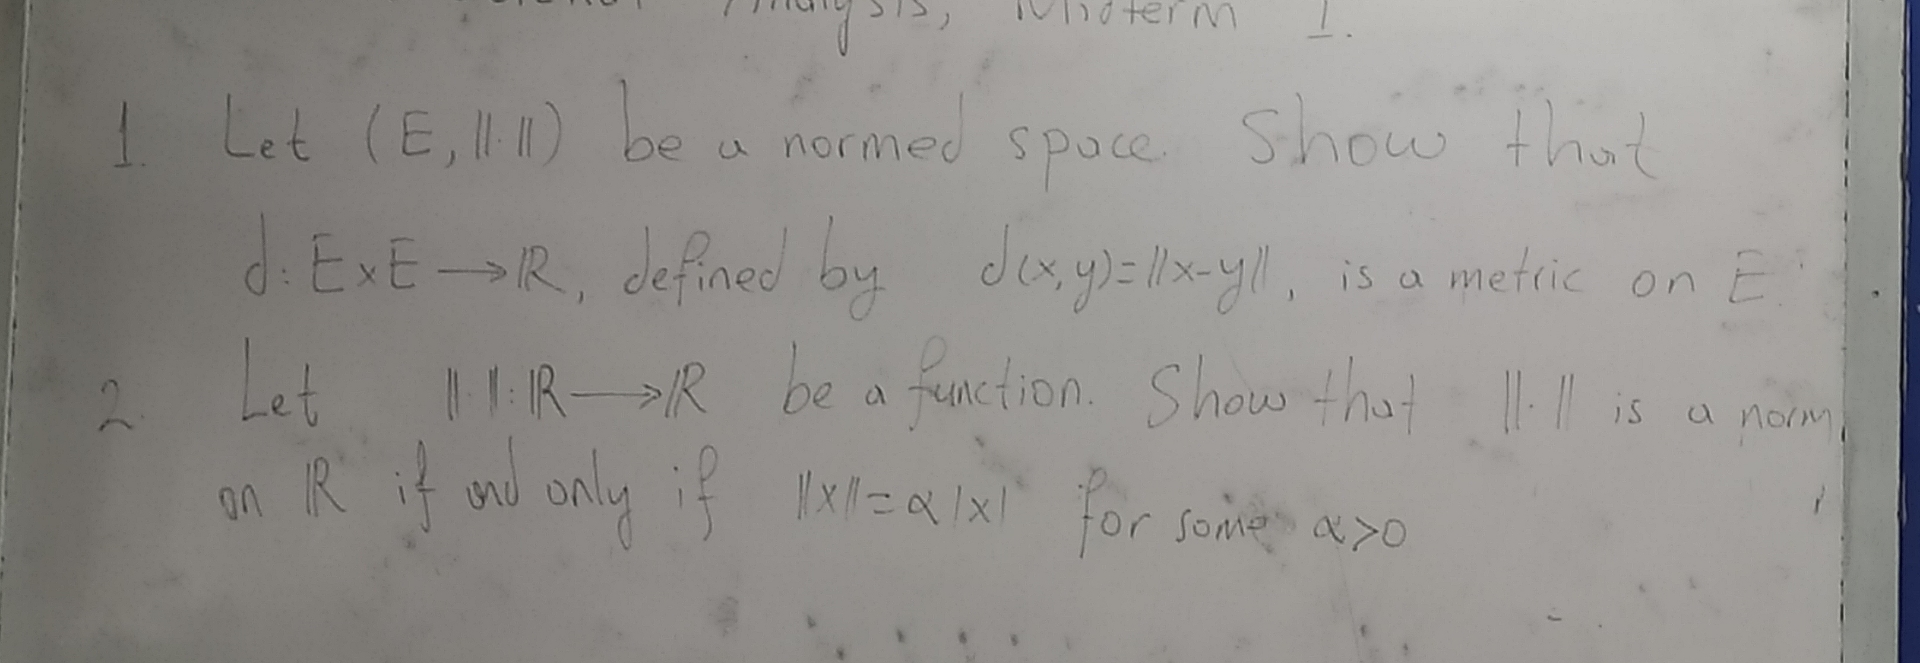 Analysis, Midterm 1.
1. Let (E, ||·||) be a normed space. Show that
d: E×E → ℝ, defined by d(x,y)=||x-y||, is a metric on E.
2. Let ||·||: ℝ → ℝ be a function. Show that ||·|| is a norm
on ℝ if and only if ||x||=α|x| for some α>0